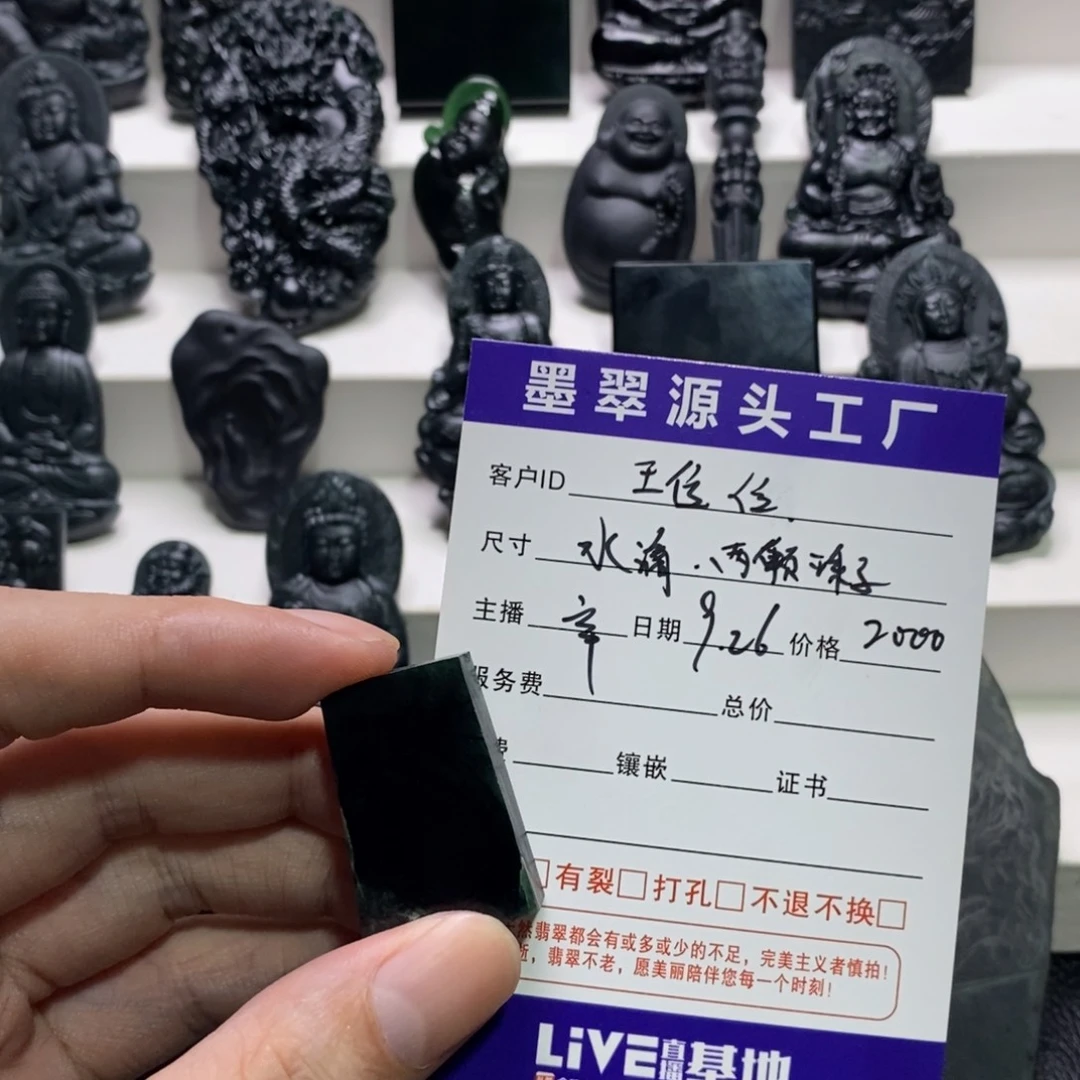 墨翠源头工厂
客户ID 王位位
尺寸 水滴.两颗珠子
主播 辛 日期 9.26 价格 2000
服务费 总价
费 镶嵌 证书
□有裂□打孔□不退不换□
然翡翠都会有或多或少的不足，完美主义者慎拍!
逝，翡翠不老，愿美丽陪伴您每一个时刻!
LiVE直播基地